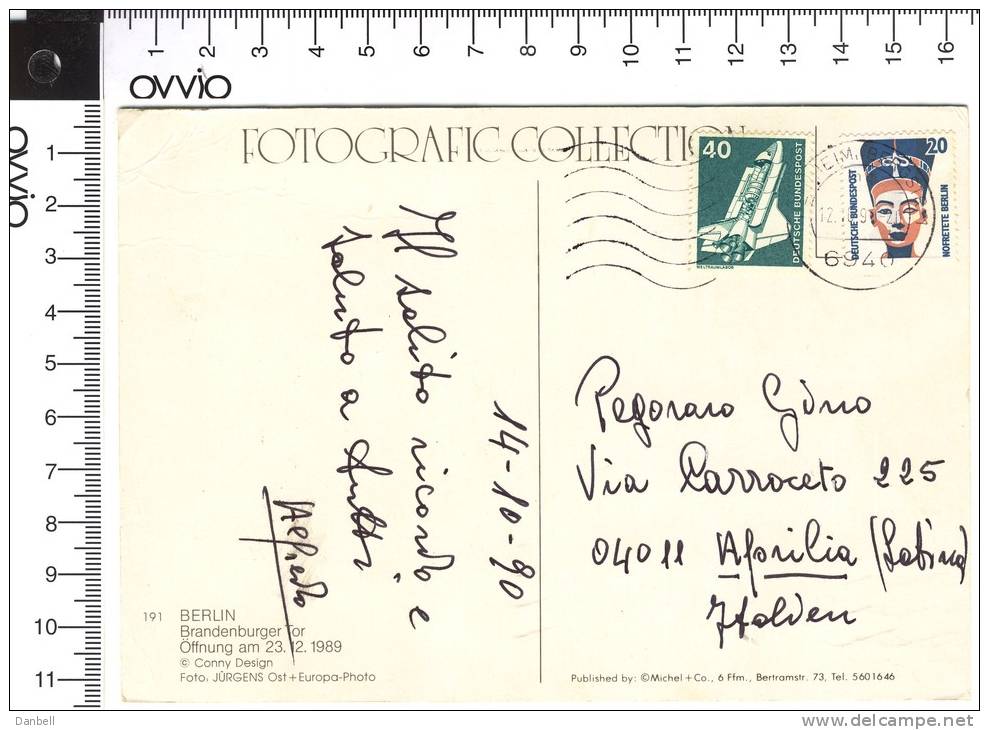 1 2 3 4 5 6 7 8 9 10 11 12 13 14 15 16
ovvio
ovvio
1
2
3
4
5
6
7
8
9
10
11
FOTOGRAFIC COLLECTION
40
DEUTSCHE BUNDESPOST
WELTRAUMLABOR
20
DEUTSCHE BUNDESPOST
NOFRETETE BERLIN
6940
14-10-90
Il solito ricordo e
saluto a tutti
Alfredo
Pegoraro Gino
Via Carroceto 225
04011 Aprilia (Latina)
Italien
191 BERLIN
Brandenburger Tor
Öffnung am 23.12.1989
© Conny Design
Foto: JÜRGENS Ost+Europa-Photo
Published by: ©Michel+Co., 6 Ffm., Bertramstr. 73, Tel. 5601646
Danbell
www.delcampe.net